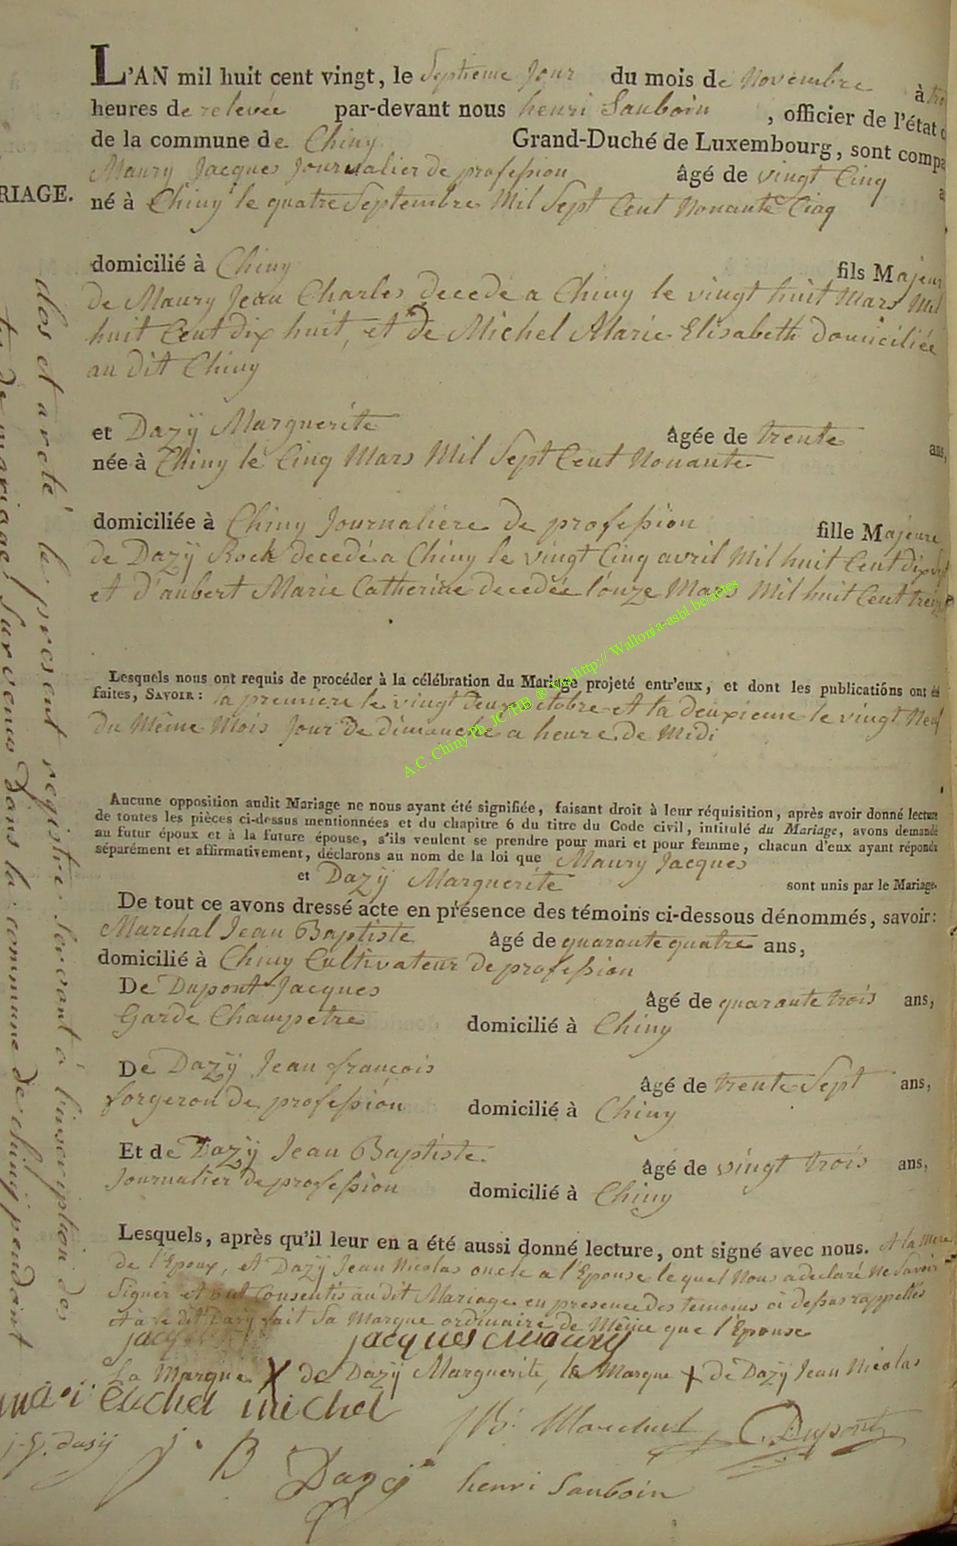 L'AN mil huit cent vingt, le Septieme Jour du mois de Novembre à
heures de relevée par-devant nous henri Sauboin, officier de l'état
de la commune de Chiny Grand-Duché de Luxembourg, sont compa
Maury Jacques Journalier de profession âgé de vingt Cinq
RIAGE. né à Chiny le quatre Septembre Mil Sept Cent Nonante Cinq
domicilié à Chiny fils Majeur
de Maury Jean Charles decede a Chiny le vingt huit Mars Mil
huit Cent dix huit, et de Michel Marie Elisabeth domiciliée
au dit Chiny
et Dazÿ Marguerite âgée de trente ans,
née à Chiny le Cinq Mars Mil Sept Cent Nonante
domiciliée à Chiny Journaliere de profession fille Majeure
de Dazÿ Rock decedé a Chiny le vingt Cinq avril Mil huit Cent dix
et d'aubert Marie Catherine decedée l'onze Mars Mil huit Cent
Lesquels nous ont requis de procéder à la célébration du Mariage projeté entr'eux, et dont les publications ont été
faites, SAVOIR : la premiere le vingt deux octobre et la deuxieme le vingt Neuf
du Même Mois Jour de dimanche a heure de Midi
Aucune opposition audit Mariage ne nous ayant été signifiée, faisant droit à leur réquisition, après avoir donné lecture
de toutes les pièces ci-dessus mentionnées et du chapitre 6 du titre du Code civil, intitulé du Mariage, avons demandé
au futur époux et à la future épouse, s'ils veulent se prendre pour mari et pour femme, chacun d'eux ayant répondu
séparément et affirmativement, déclarons au nom de la loi que Maury Jacques
et Dazÿ Marguerite sont unis par le Mariage.
De tout ce avons dressé acte en présence des témoins ci-dessous dénommés, savoir:
Marchal Jean Baptiste âgé de quarante quatre ans,
domicilié à Chiny Cultivateur de profession
De Dupont Jacques âgé de quarante trois ans,
Garde Champetre domicilié à Chiny
De Dazÿ Jean françois âgé de trente Sept ans,
forgeron de profession domicilié à Chiny
Et de Dazÿ Jean Baptiste âgé de vingt trois ans,
Journalier de profession domicilié à Chiny
Lesquels, après qu'il leur en a été aussi donné lecture, ont signé avec nous. et la Mere
de l'Epoux, et Dazÿ Jean Nicolas oncle a l'Epouse le quel Nous a declaré Ne Savoir
Signer et ont Consentis au dit Mariage en presence des temoins ci dessus rappellés
et a le dit Dazÿ fait Sa Marque ordinaire de Même que l'Epouse
jacques maury
La Marque X de Dazÿ Marguerite, la Marque X de Dazÿ Jean Nicolas
michel
JB: Marchal Dupont
J. B Dazÿ henri Sauboin
clos et areté le present registre servant à l'inscription des
de mariage survenus dans la commune de chiny pendant
A.C. Chiny Ph. JC-HB @ Via http:// Wallonia-asbl.be/actes